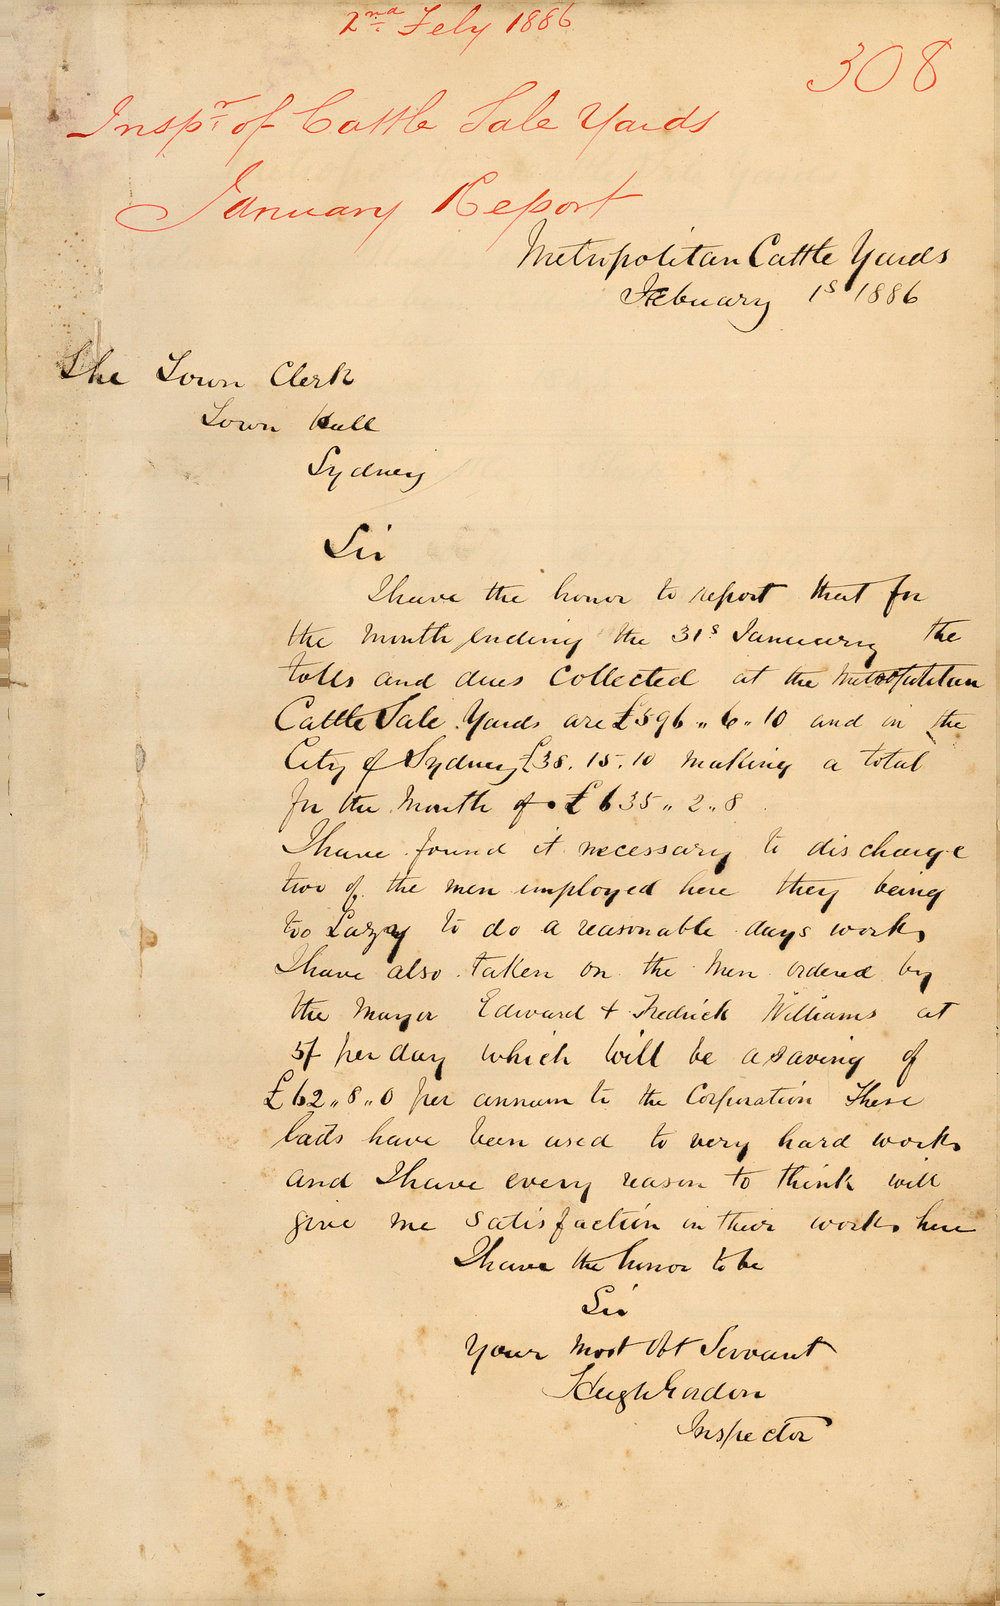 2nd Feby 1886
308
Inspr of Cattle Sale Yards
January Report
Metropolitan Cattle Yards
Febuary 1s 1886
The Town Clerk
Town Hall
Sydney
Sir
I have the honor to report that for
the month ending the 31s January the
tolls and dues collected at the Metropolitan
Cattle Sale Yards are £596"6"10 and in the
City of Sydney £38.15.10 making a total
for the month of £635"2"8
I have found it necessary to discharge
two of the men employed here they being
too Lazy to do a reasonable days work
I have also taken on the men ordered by
the Mayor Edward & Fredrick Williams at
5/ per day which will be a saving of
£62"8"0 per annum to the Corporation These
lads have been used to very hard work
and I have every reason to think will
give me satisfaction in their work here
I have the honor to be
Sir
Your most Obt Servant
Hugh Gordon
Inspector